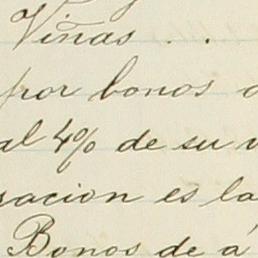 Viñas . .
por bonos
al 4% de su
sacion es la
Bonos de á